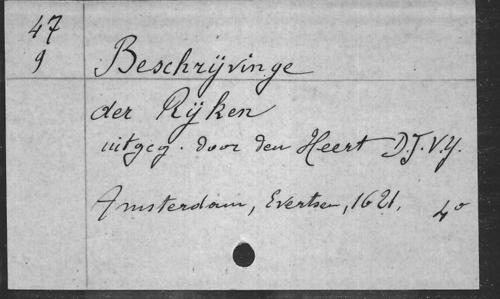 47
9
Beschrijvinge
der Rijken
uitgeg. door den Heert D.J.V.Y.
Amsterdam, Evertsen, 1621. 4°